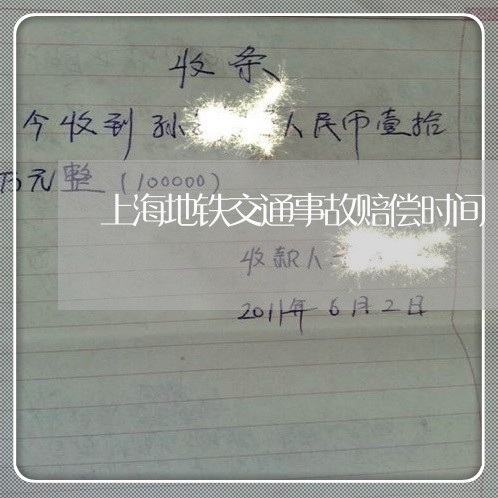 收条
今收到孙 人民币壹拾
万元整（100000）
上海地铁交通事故赔偿时间
收款人
2011年6月2日